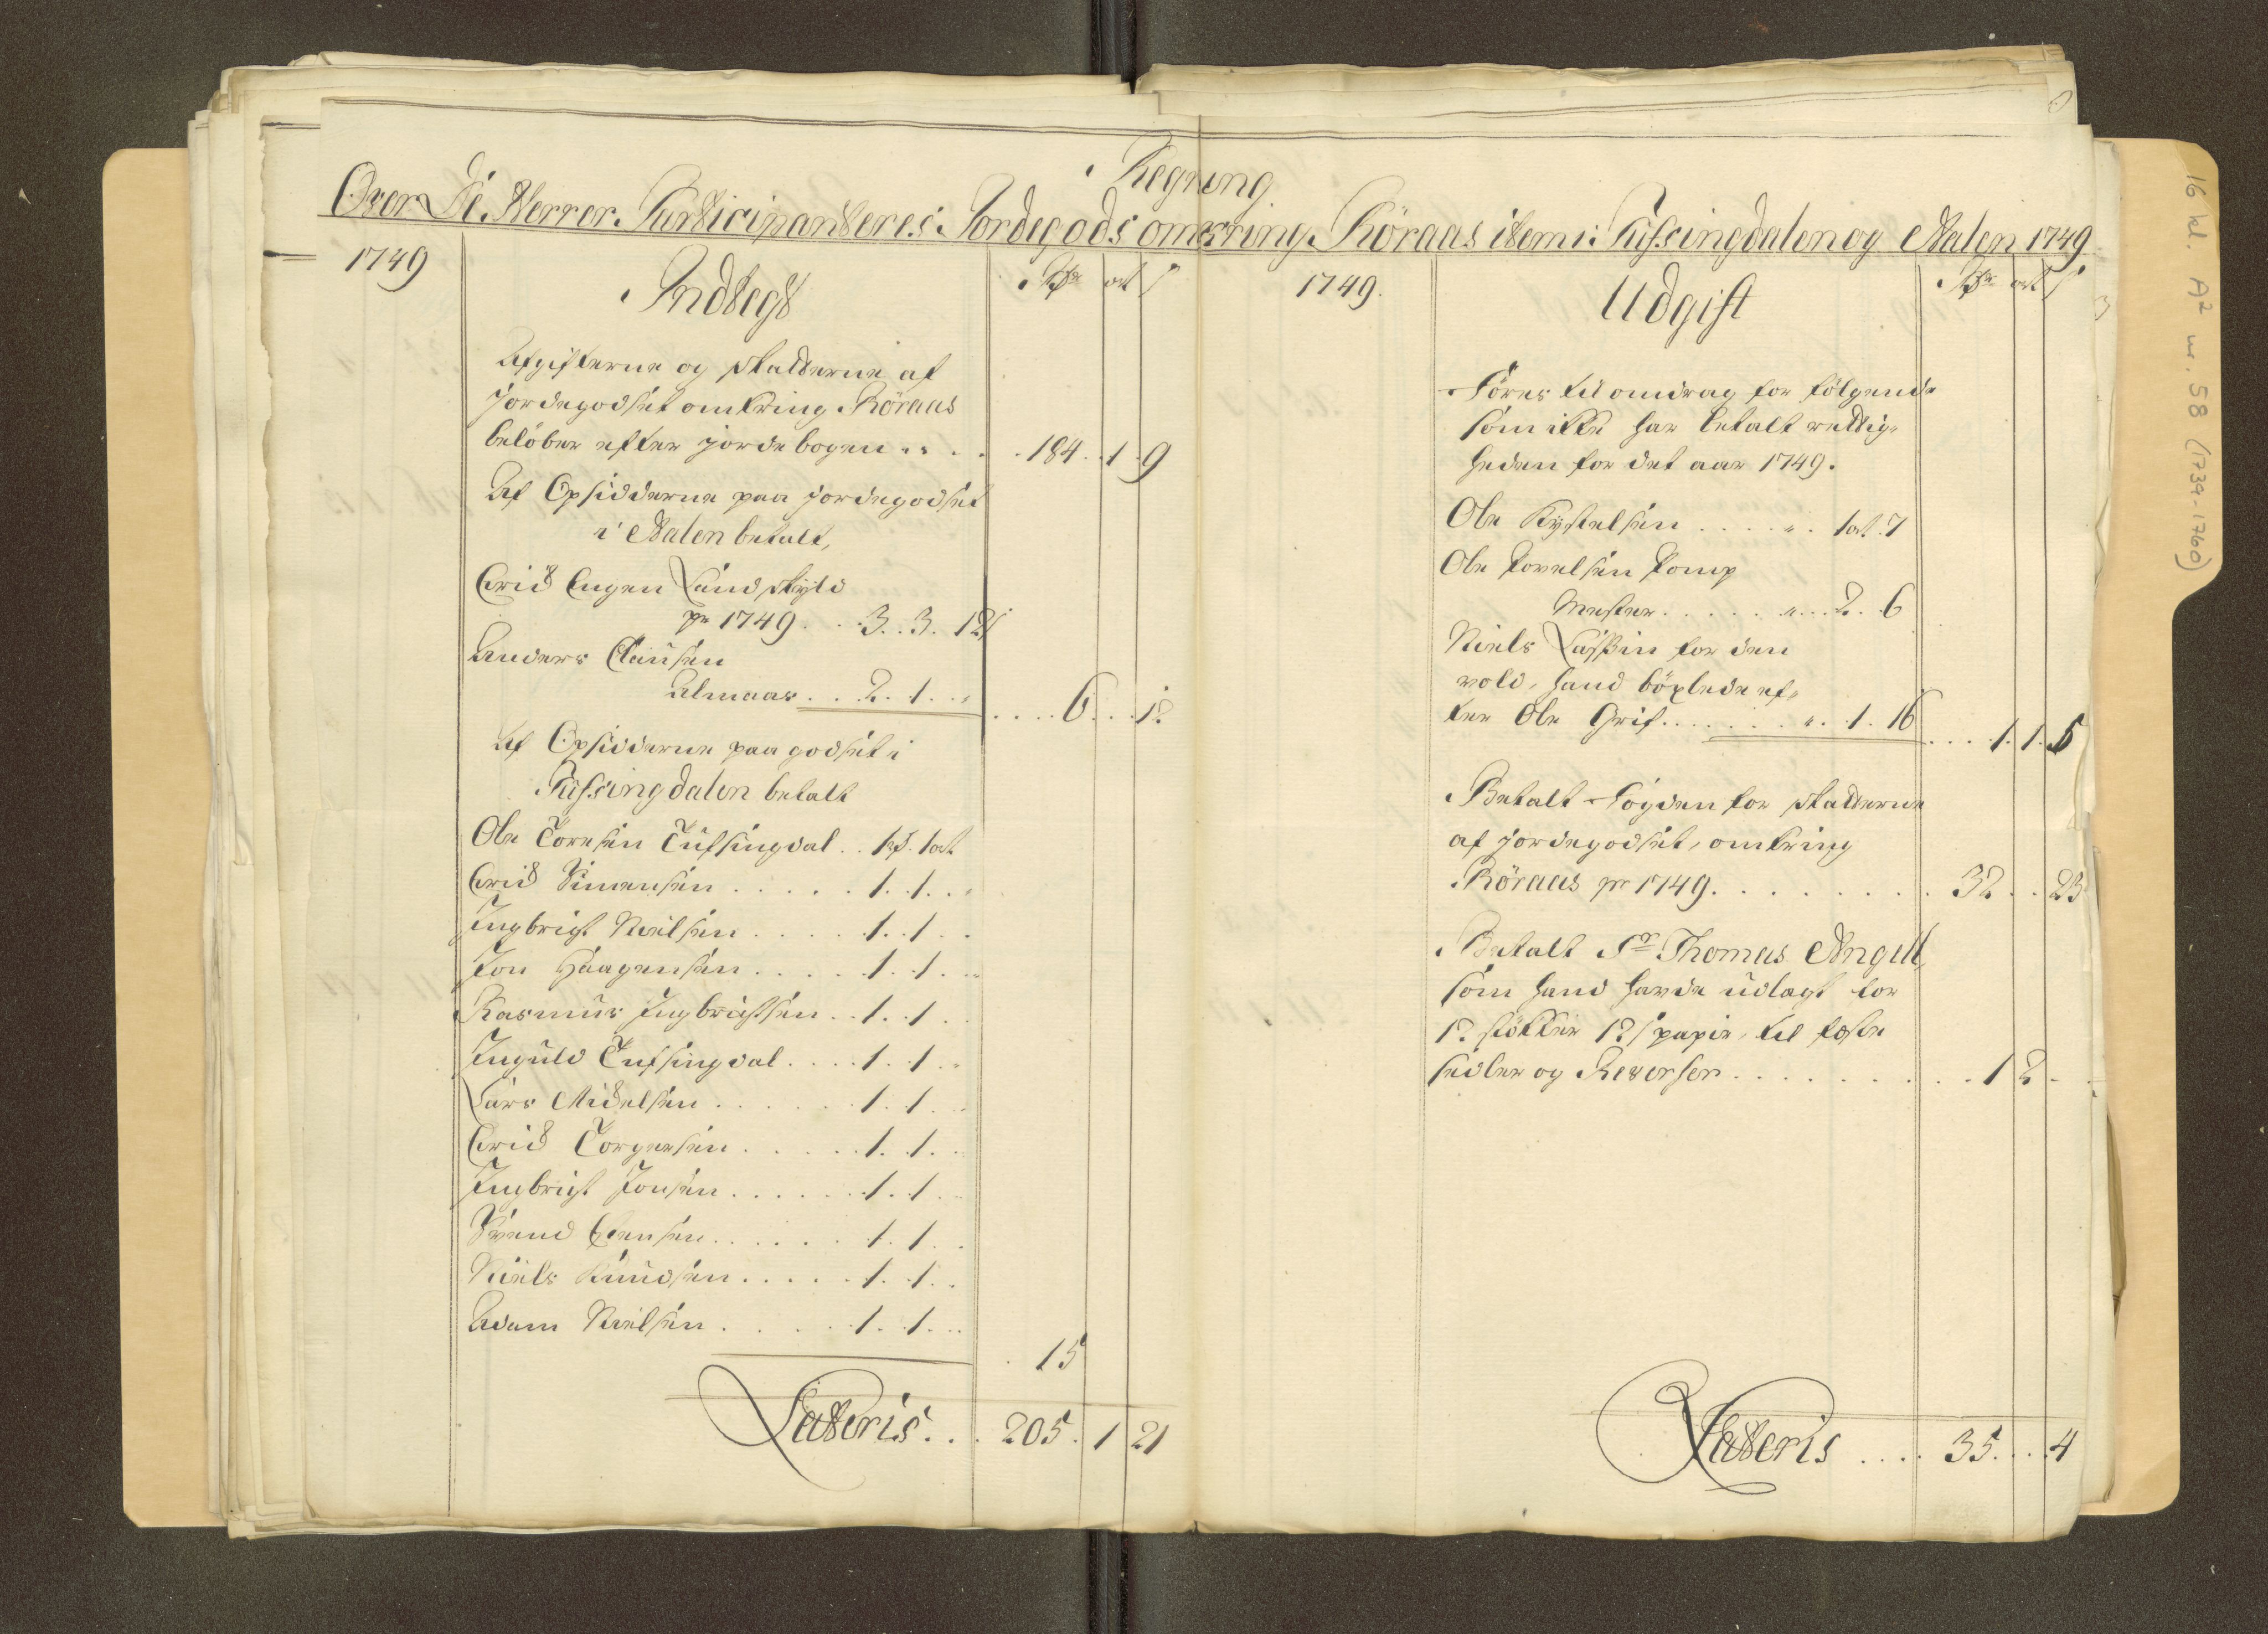 Regning
Over De Herrer Participanteres Jordegods omkring Röraas item i Tufsingdalen og Aalen 1749
1749
Indtegt
Rdr ort s
Afgifterne og skatterne af
jordegodset omkring Röraas
belöber efter jordebogen . . . . 184 . 1 . 9
Af Opsidderne paa jordegodset
i Aalen betalt,
Erich Engen Landskyld
pr 1749 . . 3 . 3 . 12 s
Anders Clausen
Almaas . . 2 . 1 . . . . . 6 . . . 12
Af Opsidderne paa godset i
Tufsingdalen betalt
Ole Toresen Tufsingdal . . 1 rd . 1 ort
Erich Simensen . . . . . 1 . 1 . „
Ingbrigt Nielsen . . . . . 1 . 1 . .
Jon Haagensen . . . . . 1 . 1 . „
Rasmus Ingbrigtsen . . 1 . 1 . .
Inguld Tufsingdal . . . . 1 . 1 . „
Lars Michelsen . . . . . 1 . 1 . „
Erich Torgersen . . . . . 1 . 1 . „
Ingbrigt Jonsen . . . . . 1 . 1 . „
Svend Estensen . . . . . 1 . 1 . .
Niels Knudsen . . . . . 1 . 1 . .
Adam Nielsen . . . . . 1 . 1 . „
15
Lateris . . . 205 . 1 21
1749.
Udgift
Rdr ort s
Föres til omdrag for fölgende
som ikke har betalt rettig-
heden for det aar 1749.
Ole Kystelsen . . . . „ . 1 ort . 7
Ole Povelsen Pomp
Mester . . . . . . „ . . . 2 . 6
Niels Lassen for den
vold, hand böxlede ef-
ter Ole Grif . . . . . . . „ . . 1 . 16 . . . 1 . 1 . 5
Betalt Fogden for skatterne
af jordegodset, omkring
Röraas pr 1749 . . . . . . . . . 32 . . 23
Betalt Sr Thomas Angell,
som hand havde udlagt for
12 stökker 12 s papir, til fæste
sedler og Reverser . . . . . . . . . 1 2 . .
Lateris . . . . 35 . . . 4
16 kl. A2 nr. 58 (1734-1760)